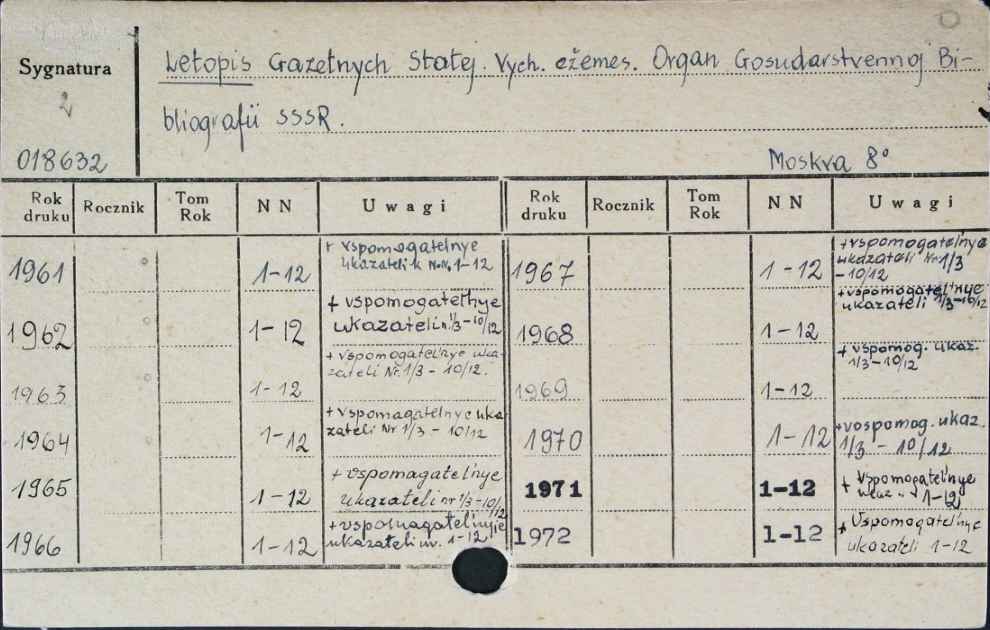 Sygnatura
2
018632
Letopis Gazetnych Statej. Vych. ežemes. Organ Gosudarstvennoj Bi-
bliografii SSSR.
Moskva 8°
Rok druku Rocznik Tom Rok NN Uwagi Rok druku Rocznik Tom Rok NN Uwagi
1961 1-12 + vspomogatelnye
ukazateli k NrNr. 1-12
1962 1-12 + vspomogatel'nye
ukazateli n. 1/3-10/12
1963 1-12 + vspomogatel'nye uka-
zateli Nr. 1/3 - 10/12.
1964 1-12 + vspomagatelnye uka
zateli Nr 1/3 - 10/12
1965 1-12 + vspomagatel'nye
ukazateli nr 1/3-10/12
1966 1-12 + vspomagatel'nyje
ukazateli nr. 1-12
1967 1-12 + vspomogatel'nye
ukazateli Nr 1/3
- 10/12
1968 1-12 + vspomogatel'nye
ukazateli 1/3-10/12
1969 1-12 + vspomog. ukaz.
1/3-10/12
1970 1-12 + vospomog. ukaz.
1/3 - 10/12
1971 1-12 + vspomogatel'nye
1-12
1972 1-12 + vspomogatel'nye
ukazateli 1-12